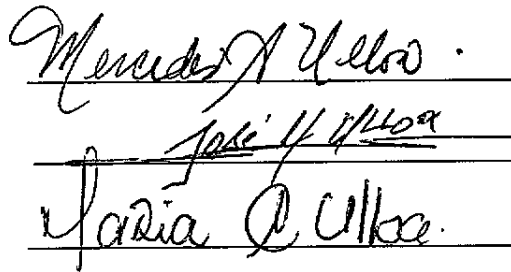 Mercedes A Ulloa.
José Y Ulloa
Maria C Ulloa.